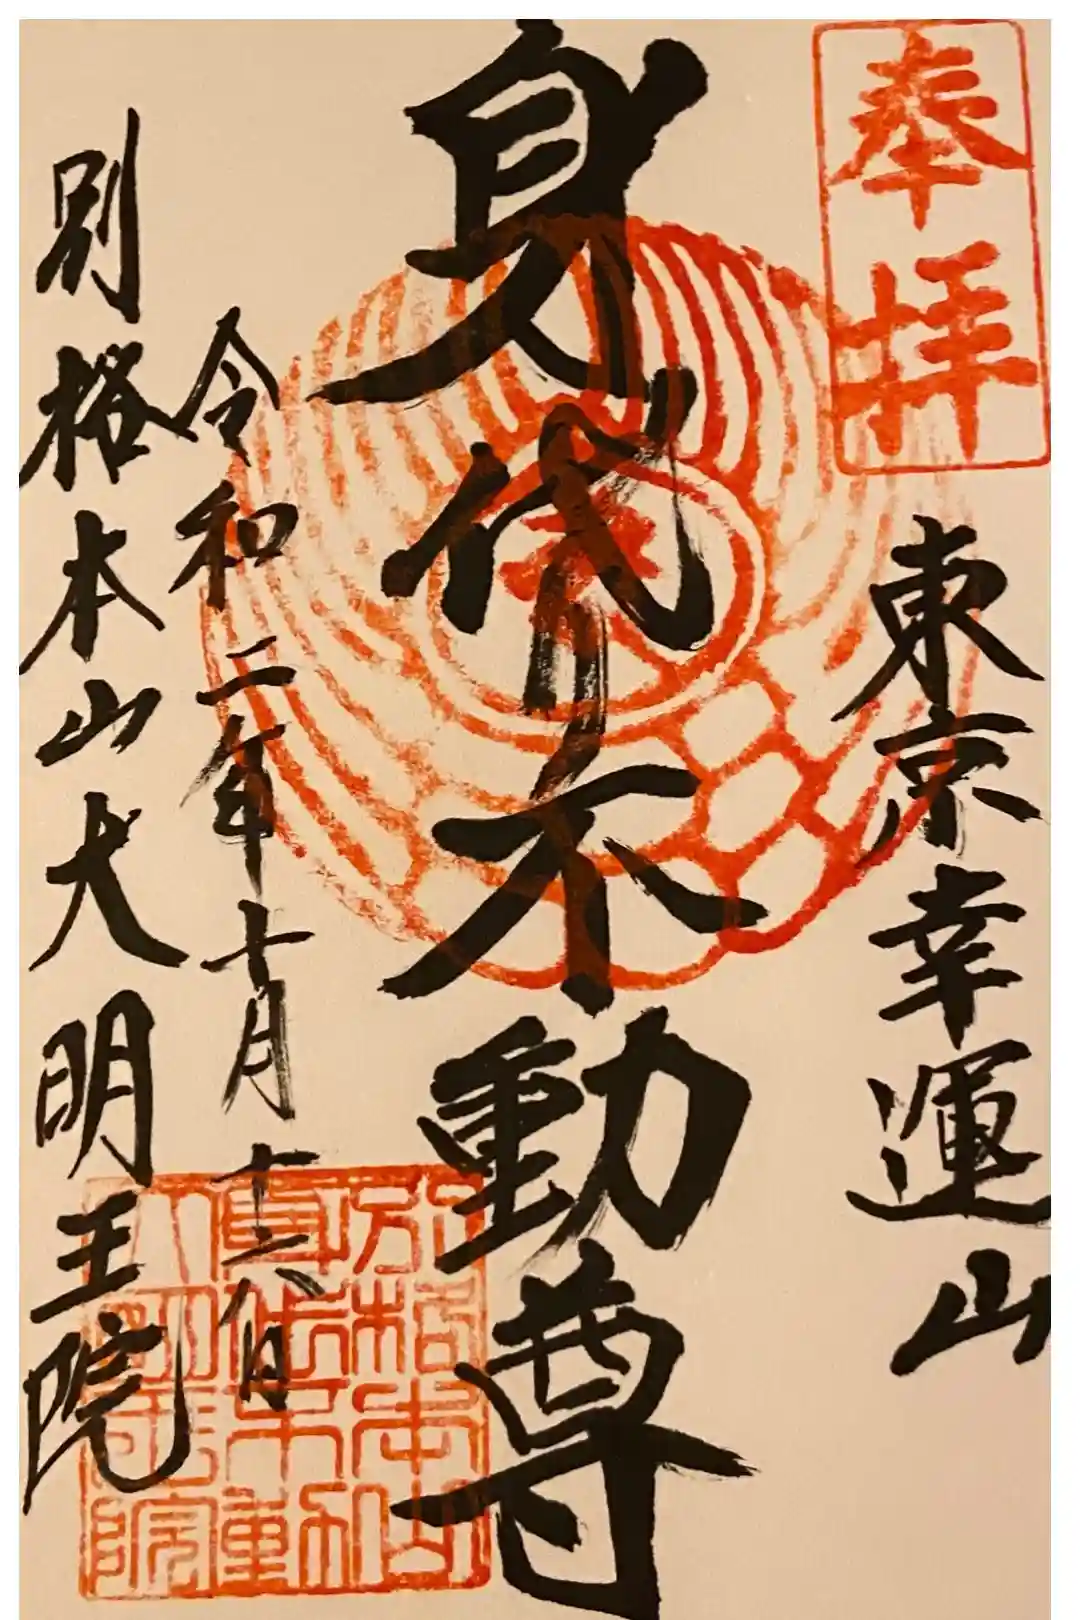 奉拝
東京幸運山
身代不動尊
令和二年十月八日
別格本山大明王院